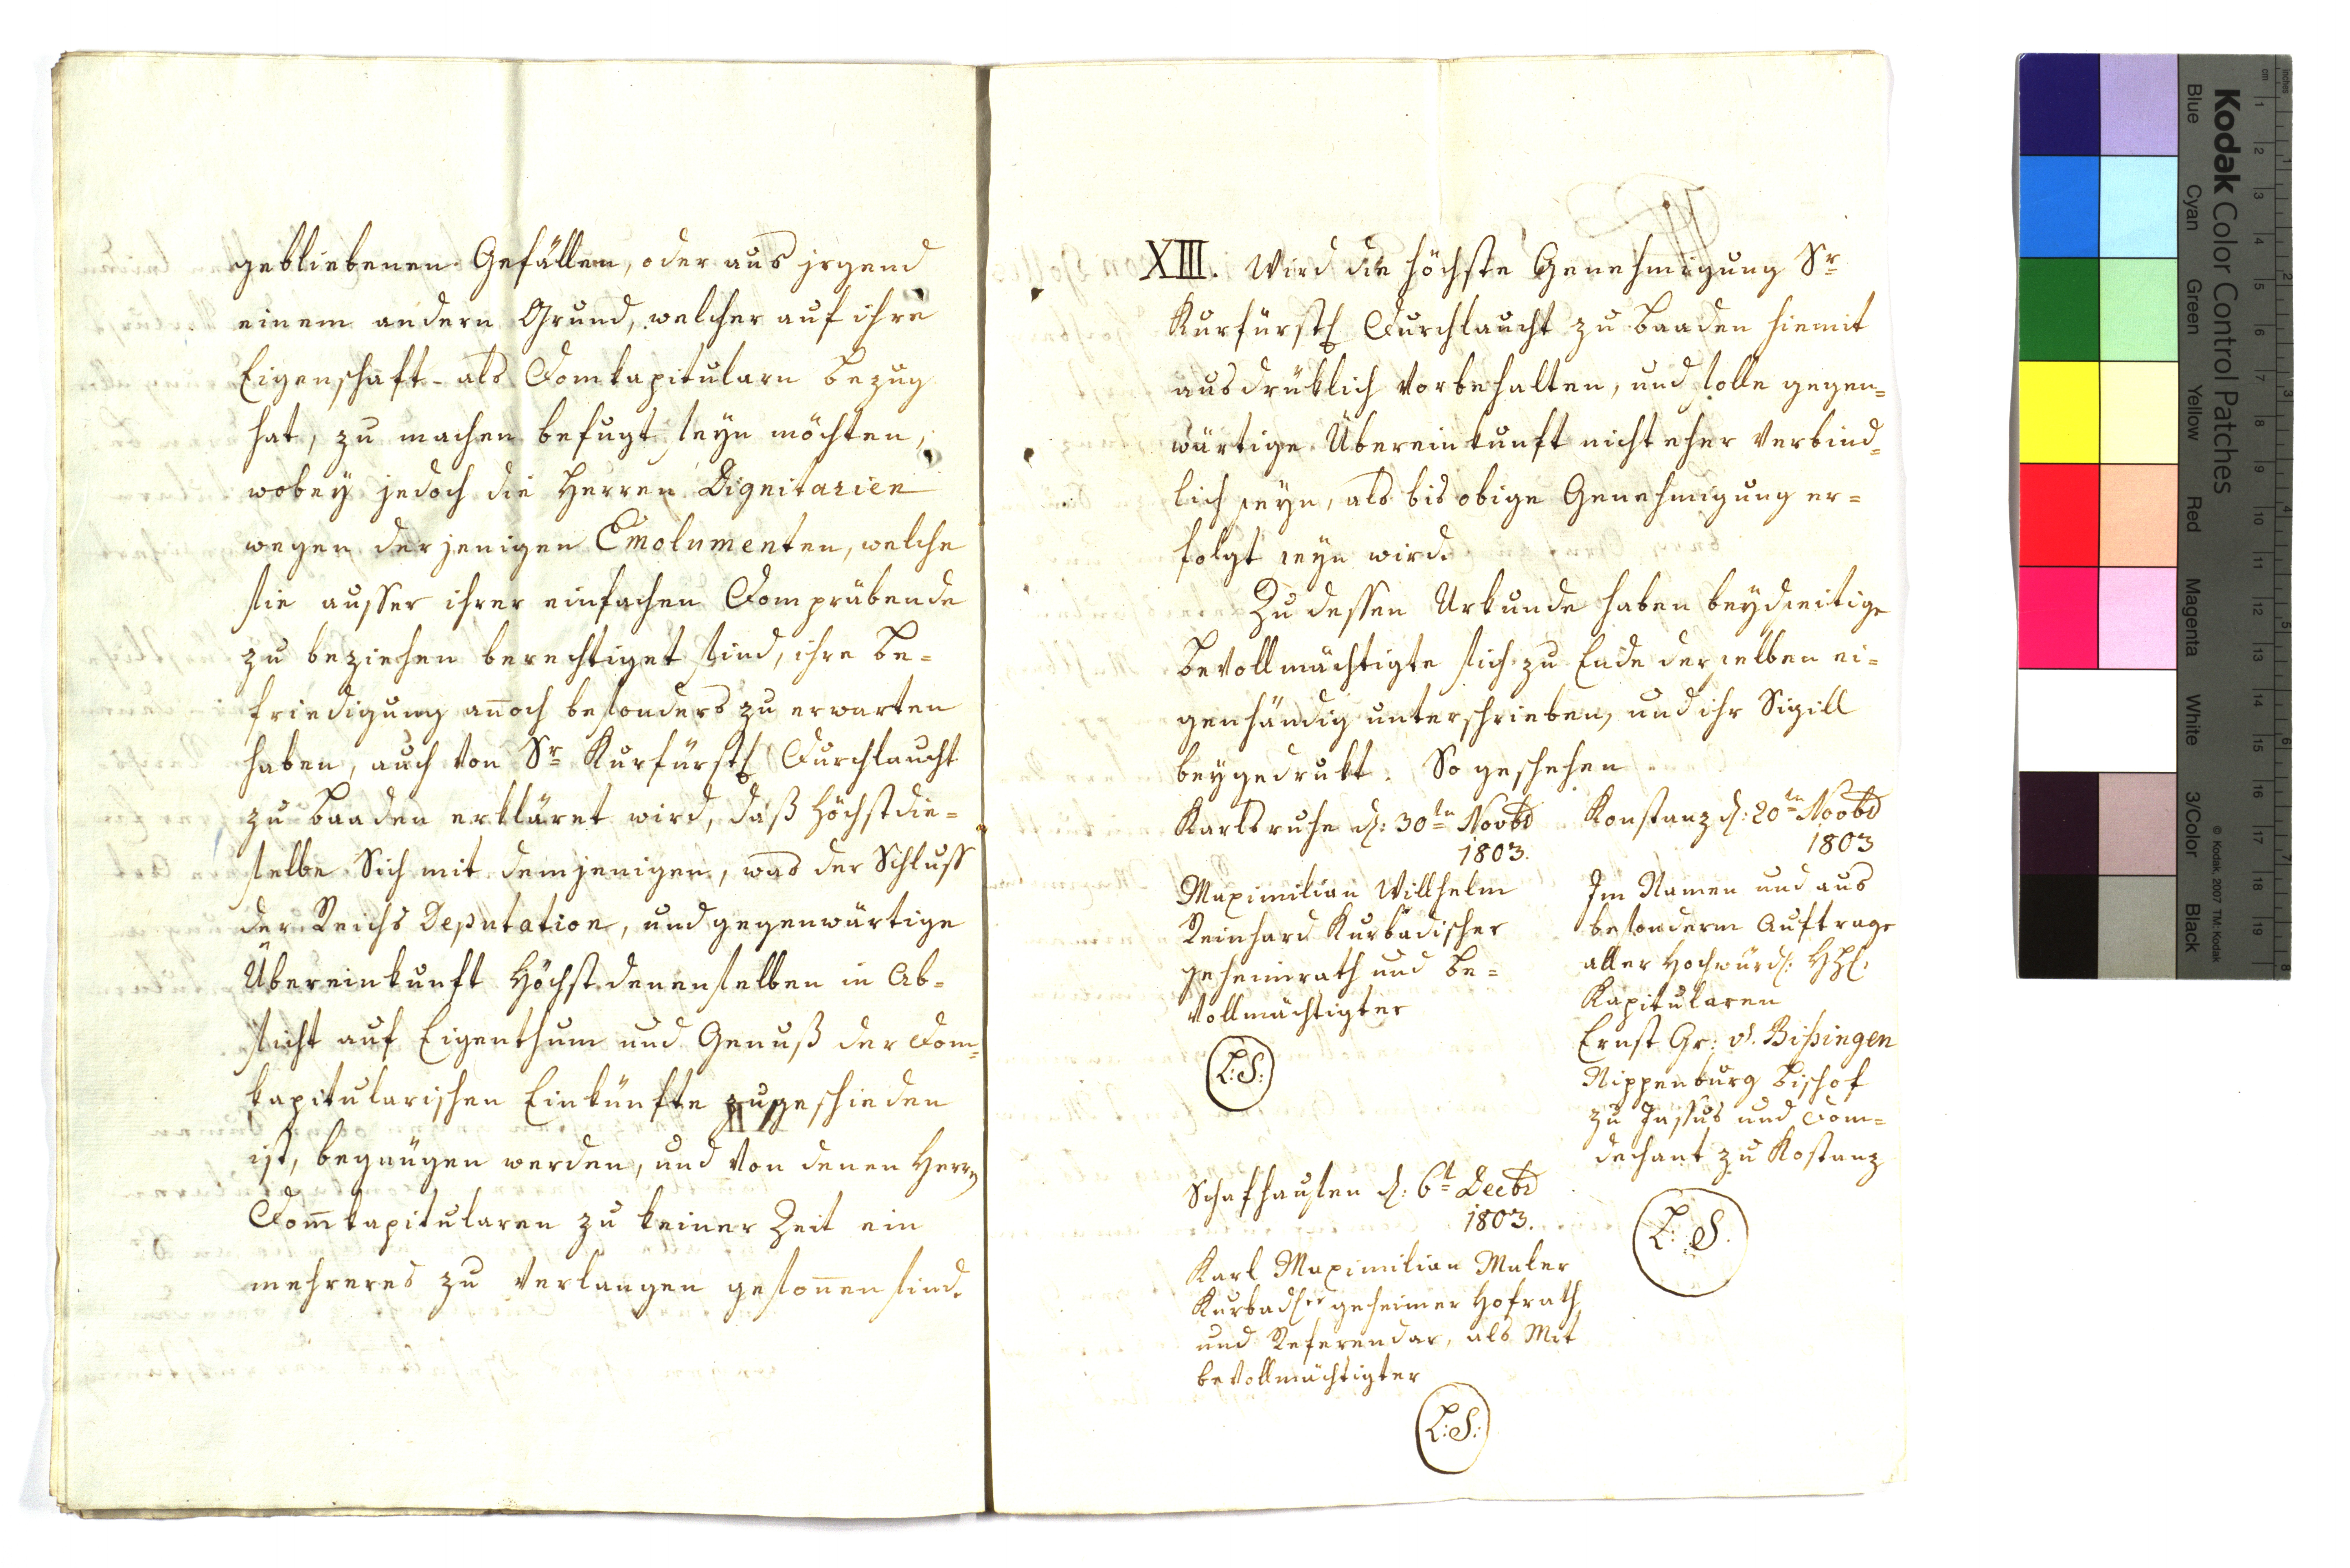 gebliebenen Gefällen, oder aus jrgend
einem andern Grund, welcher auf ihre
Eigenschaft als Domkapitularn bezug
hat, zu machen befugt seyn möchten,
wobey jedoch die Herren Dignitarien
wegen derjenigen Emolumenten, welche
sie ausser ihrer einfachen Dompräbende
zu beziehen berechtiget sind, ihre be=
friedigung an̄och besonders zu erwarten
haben, auch von Sr Kurfürstl Durchlaucht
zu Baaden erkläret wird, daß höchstdie=
selbe Sich mit demjenigen, was der Schluss
der Reichs Deputation, und gegenwärtige
Übereinkunft Höchstdenenselben in Ab=
sicht auf Eigenthum und Genuß der Dom=
kapitularischen Einkünfte zugeschieden
ist, begnügen werden, und von denen Herrn
Dom̄kapitularen zu keiner Zeit ein
mehreres zu verlangen geson̄en sind.
XIII. Wird die höchste Genehmigung Sr
Kurfürstl Durchlaucht zu Baaden hiemit
ausdrüklich vorbehalten, und solle gegen=
wärtige Übereinkunft nicht eher verbind=
lich seyn, als bis obige Genehmigung er=
folgt seyn wird.
Zu dessen Urkunde haben beydseitige
Bevollmächtigte sich zu Ende derselben ei=
genhändig unterschrieben, und ihr Sigill
beygedrukt. So geschehen
Karlsruhe d: 30tn Novbr
1803.
Maximilian Willhelm
Reinhard Kurbadischer
geheimrath und Be=
vollmächtigter
L: S:
Konstanz d: 20tn Novbr
1803
Im Namen und aus
besonderm Auftrage
aller Hochwürd: HH:
Kapitularen
Ernst Gr: v. Bißingen
Nippenburg Bischof
zu Jassus und Dom=
dechant zu Kostanz
L: S.
Schafhausen d: 6t Decbr
1803.
Karl Maximilian Maler
Kurbadscher geheimer Hofrath
und Referendar, als Mit
bevollmächtigter
L: S:
Kodak Color Control Patches
Blue Cyan Green Yellow Red Magenta White 3/Color Black
© Kodak, 2007 TM: Kodak
cm 1 2 3 4 5 6 7 8 9 10 11 12 13 14 15 16 17 18 19
inches 1 2 3 4 5 6 7 8